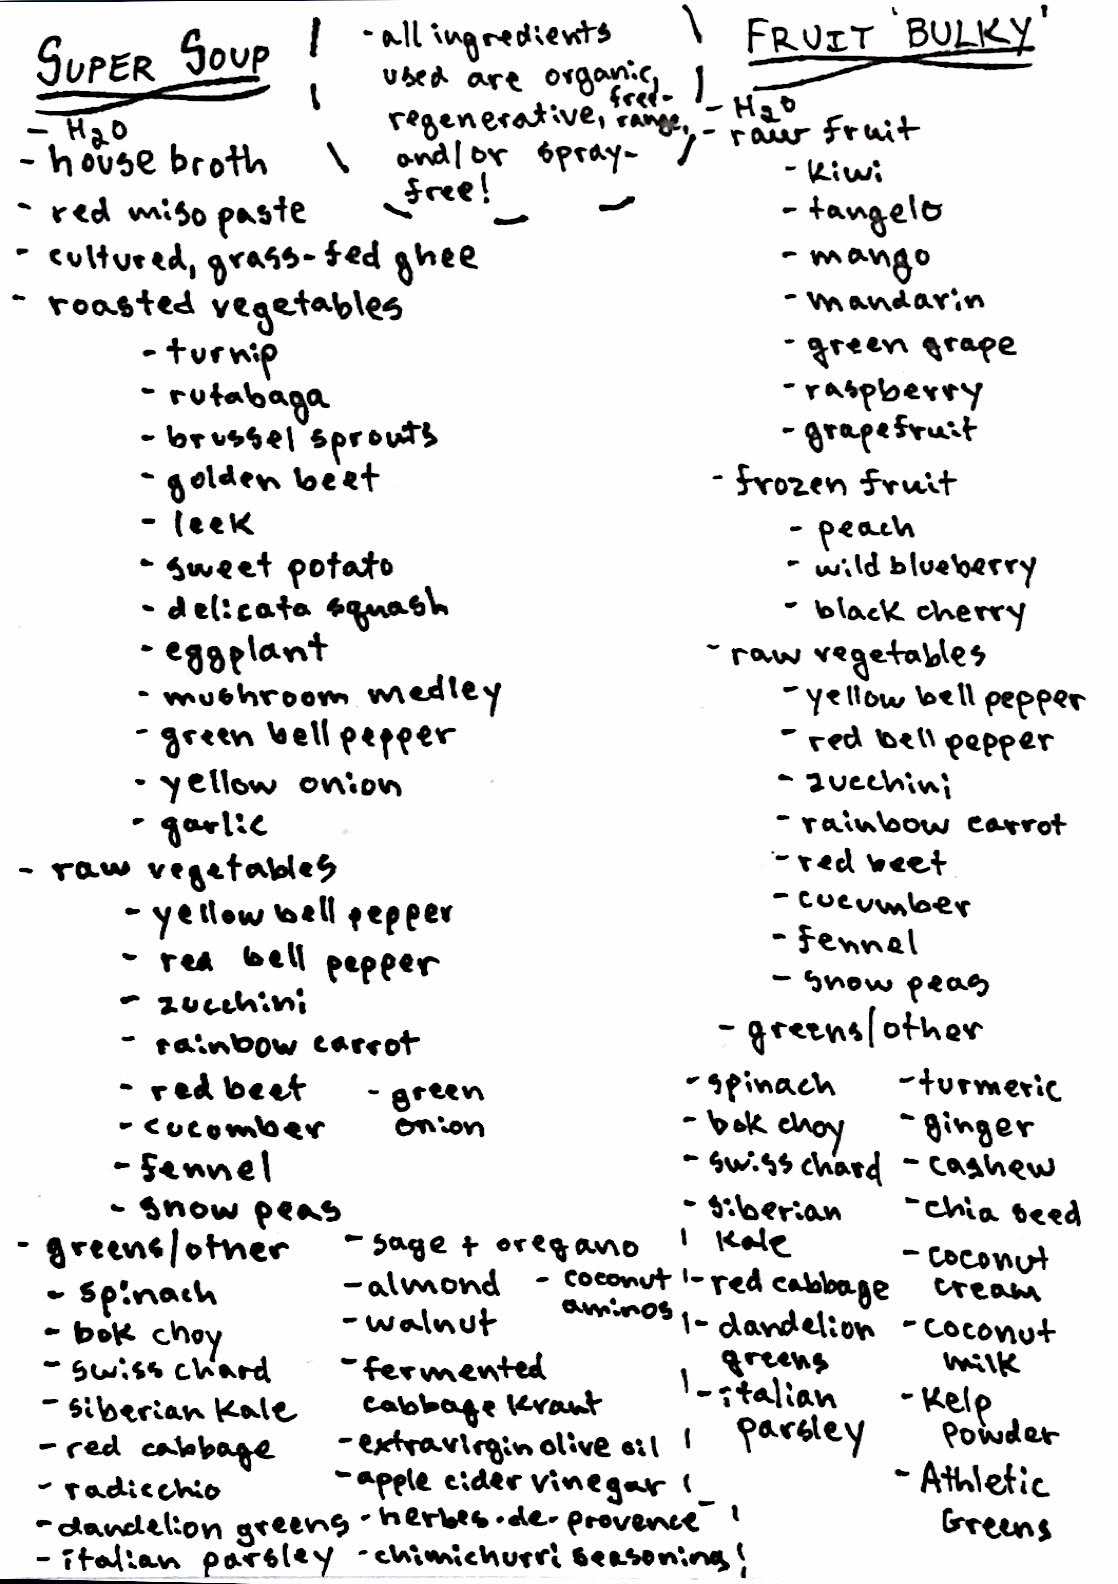 SUPER SOUP
- H2O
- house broth
- red miso paste
- cultured, grass-fed ghee
- roasted vegetables
- turnip
- rutabaga
- brussel sprouts
- golden beet
- leek
- sweet potato
- delicata squash
- eggplant
- mushroom medley
- green bell pepper
- yellow onion
- garlic
- raw vegetables
- yellow bell pepper
- red bell pepper
- zucchini
- rainbow carrot
- red beet
- cucomber
- fennel
- snow peas
- green
onion
- greens/other
- spinach
- bok choy
- swiss chard
- siberian kale
- red cabbage
- radicchio
- dandelion greens
- italian parsley
- sage + oregano
- almond
- walnut
- fermented
cabbage kraut
- extravirgin olive oil
- apple cider vinegar
- herbes-de-provence
- chimichurri seasoning!
- coconut
aminos
- all ingredients
used are organic,
regenerative, free-range,
and/or spray-
free!
FRUIT 'BULKY'
- H2O
- raw fruit
- kiwi
- tangelo
- mango
- mandarin
- green grape
- raspberry
- grapefruit
- frozen fruit
- peach
- wild blueberry
- black cherry
- raw vegetables
- yellow bell pepper
- red bell pepper
- zucchini
- rainbow carrot
- red beet
- cucumber
- fennel
- snow peas
- greens/other
- spinach
- bok choy
- swiss chard
- siberian
kale
- red cabbage
- dandelion
greens
- italian
parsley
- turmeric
- ginger
- cashew
- chia seed
- coconut
cream
- coconut
milk
- kelp
powder
- Athletic
Greens